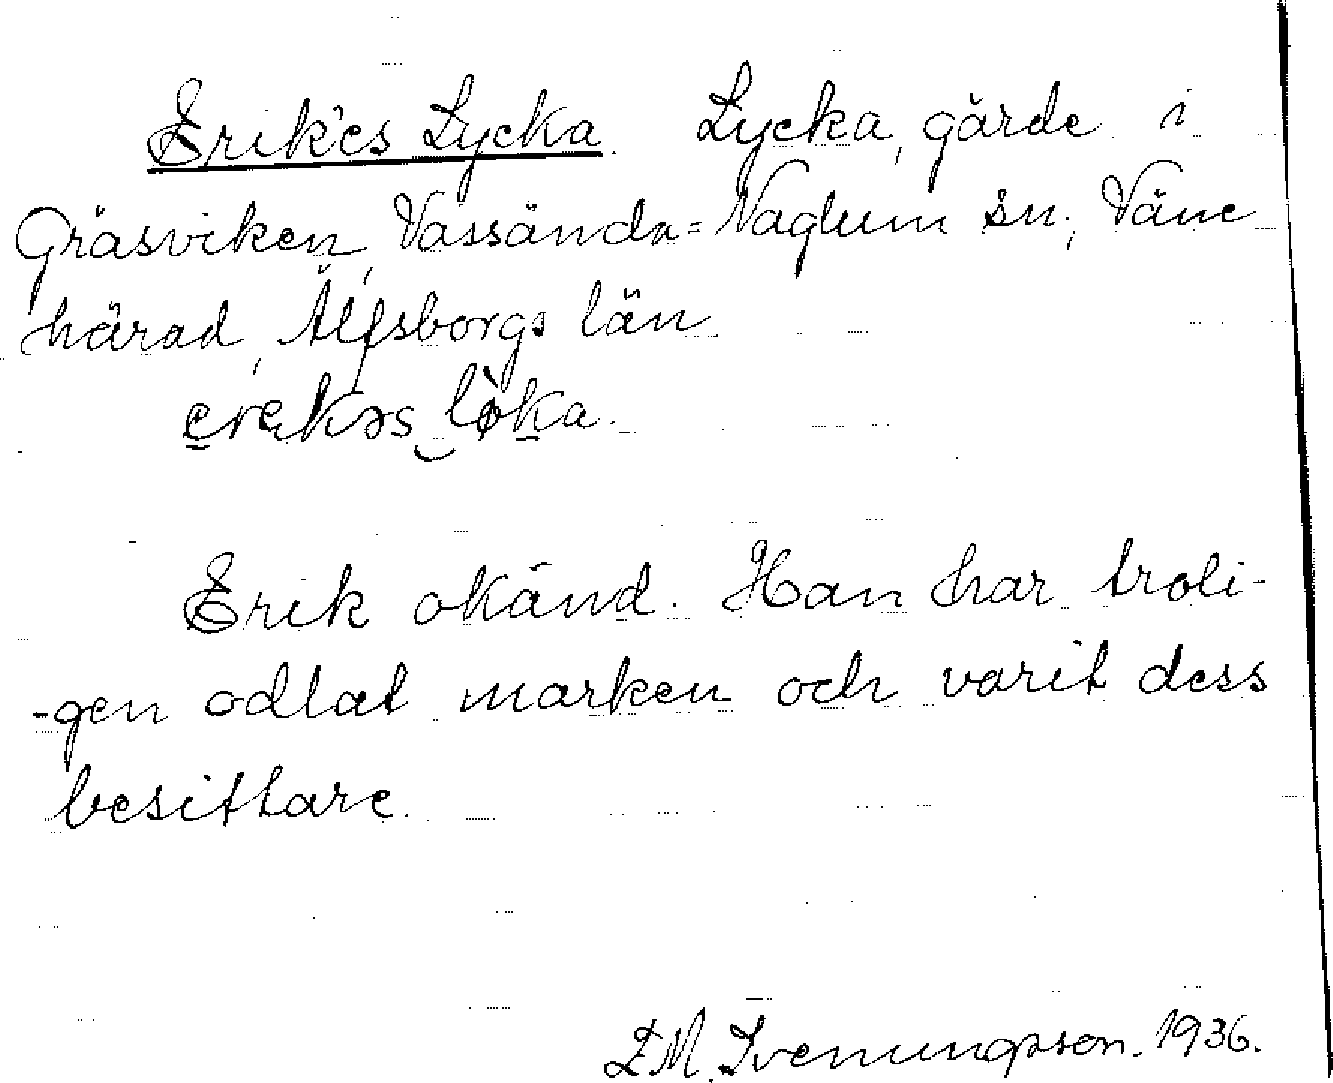 Erik'es Lycka. Lycka, gärde i
Gräsviken, Vassända=Naglum sn; Väne
härad, Älfsborgs län.
erekəs løka.
Erik okänd. Han har troli-
-gen odlat marken och varit dess
besittare.
E M. Ivenungsson. 1936.